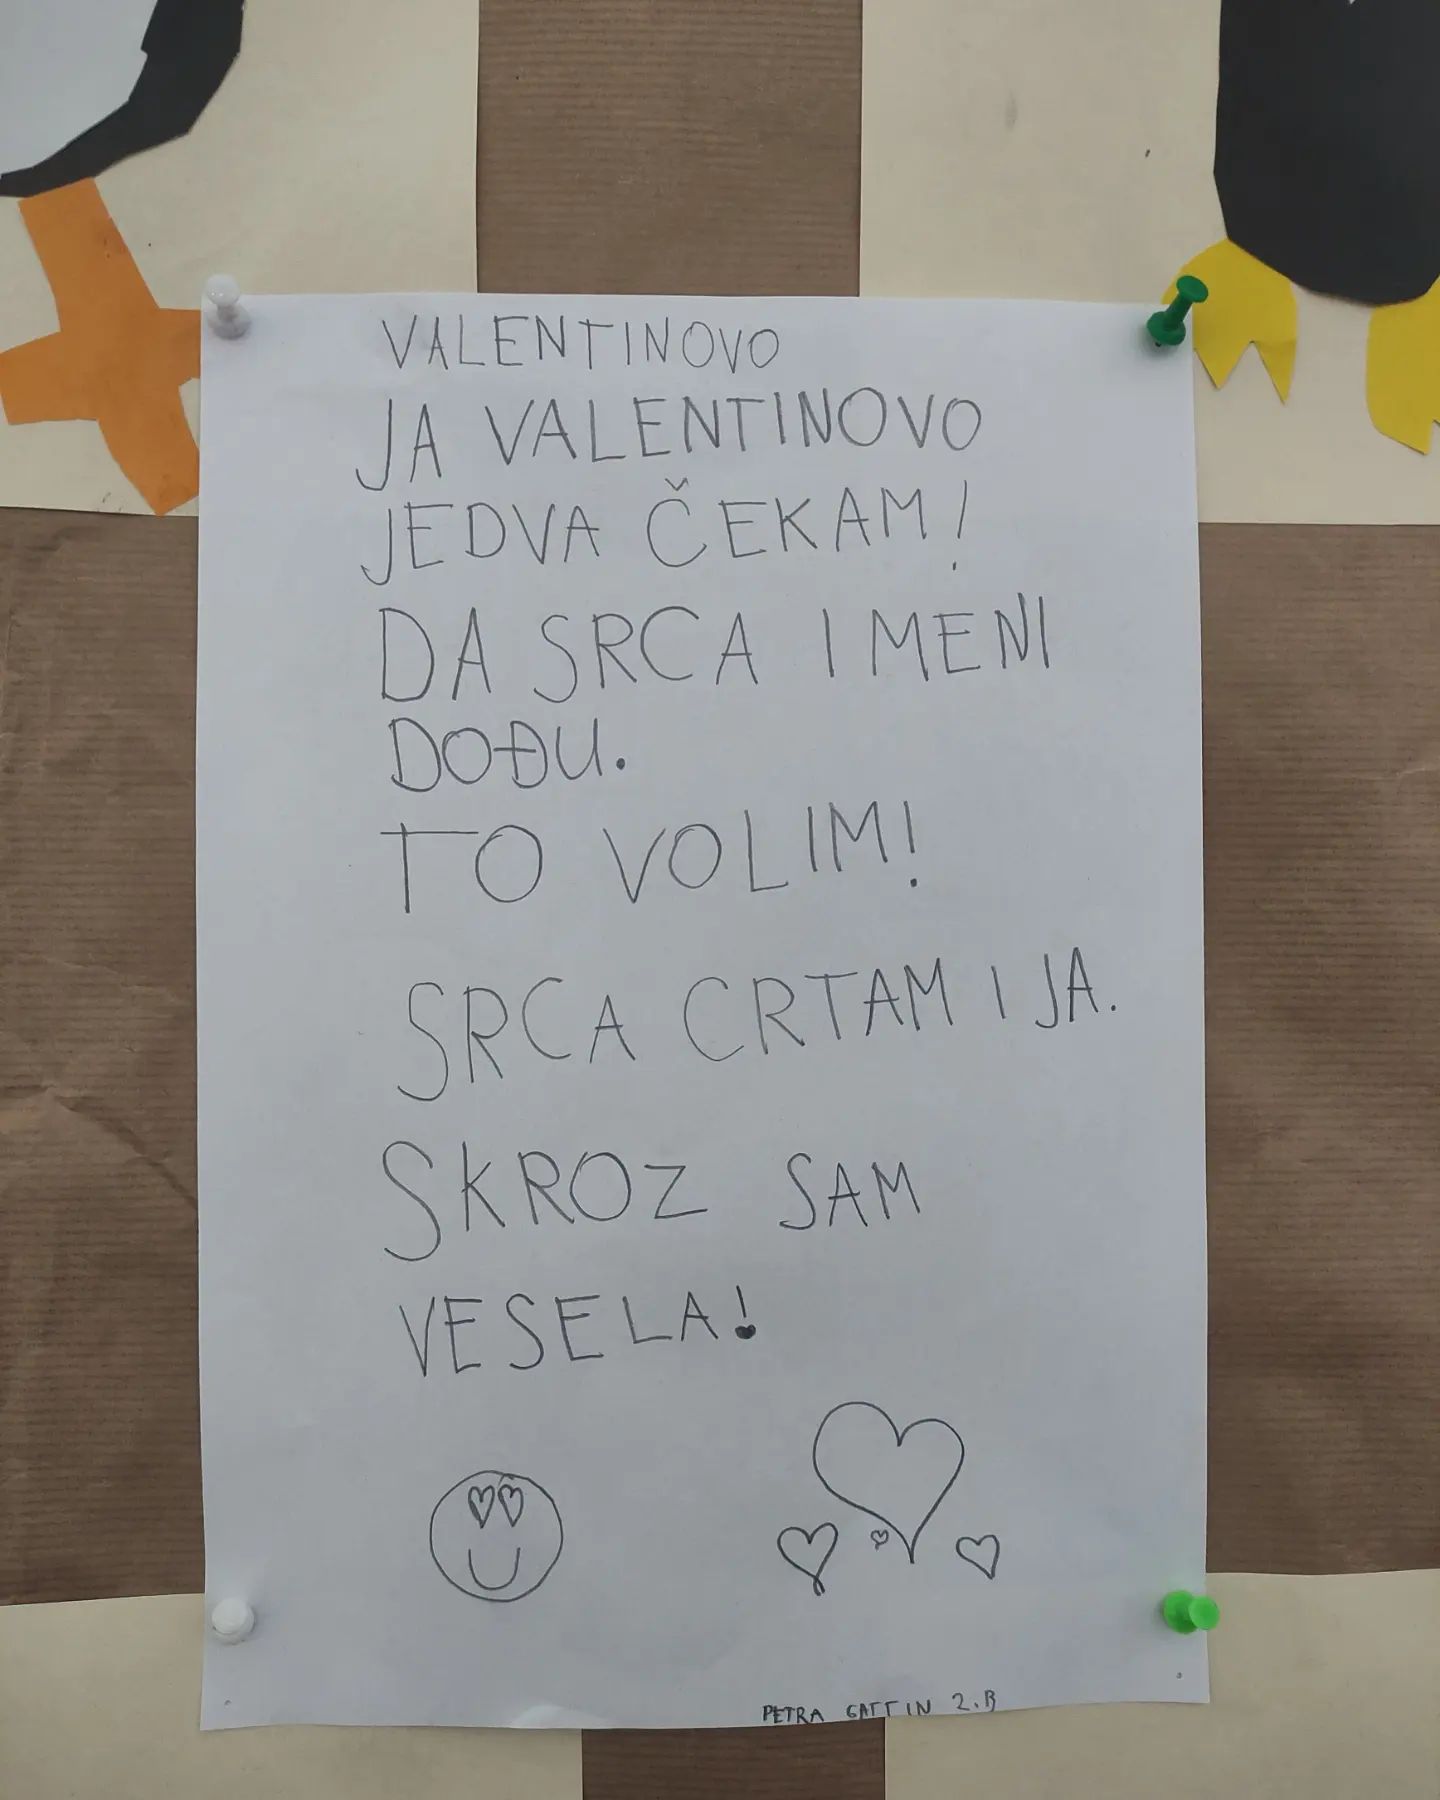 VALENTINOVO
JA VALENTINOVO
JEDVA ČEKAM!
DA SRCA I MENI
DOĐU.
TO VOLIM!
SRCA CRTAM I JA.
SKROZ SAM
VESELA!
PETRA GATTIN 2.B